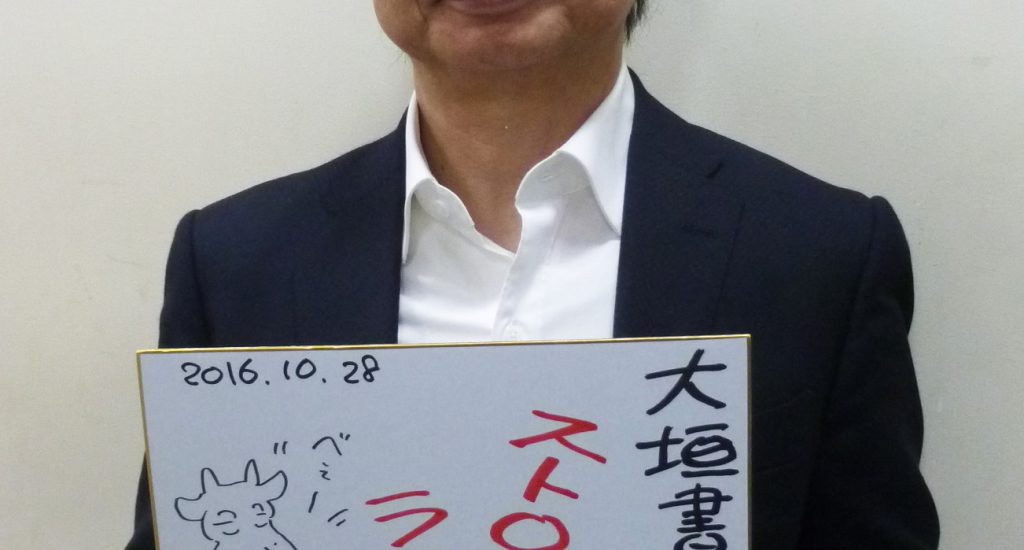 大垣書
ストロ
ラ
"べぇー"
2016.10.28